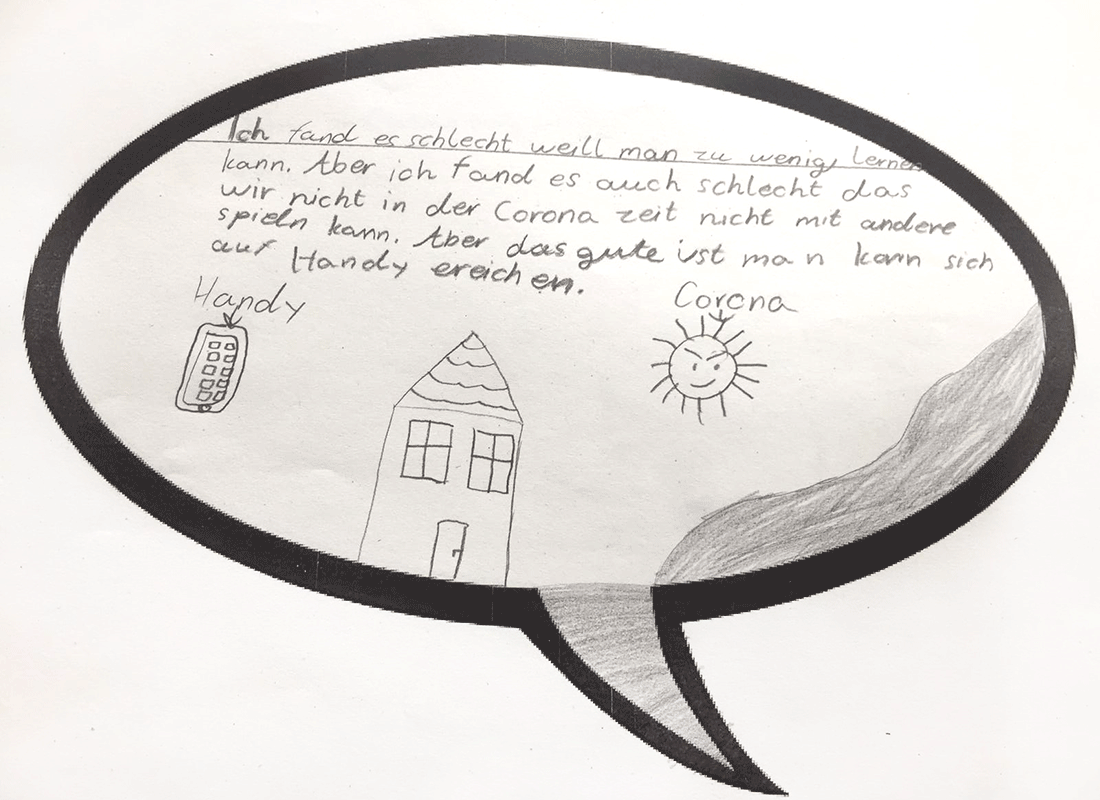 Ich fand es schlecht weill man zu wenig lernen
kann. Aber ich fand es auch schlecht das
wir nicht in der Corona zeit nicht mit andere
spieln kann. Aber das gute ist man kann sich
auf Handy ereichen.
Handy
Corona